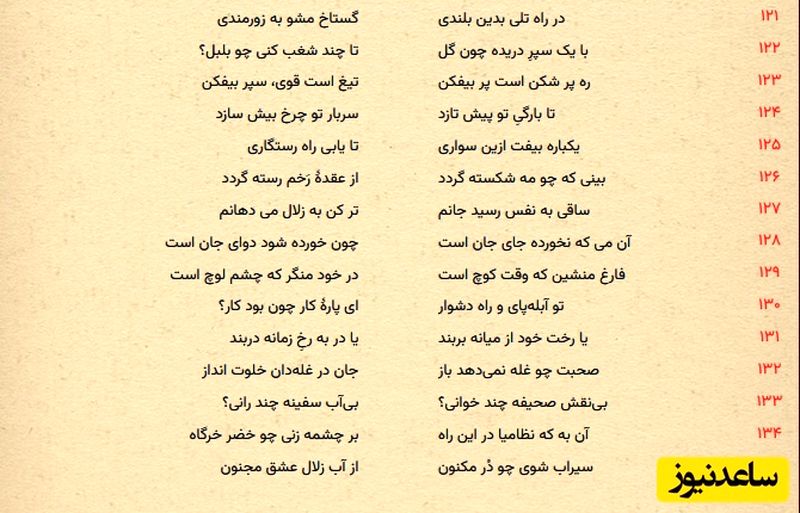 ۱۲۱ در راه تلی بدین بلندی گستاخ مشو به زورمندی
۱۲۲ با یک سپرِ دریده چون گل تا چند شغب کنی چو بلبل؟
۱۲۳ ره پر شکن است پر بیفکن تیغ است قوی، سپر بیفکن
۱۲۴ تا بارگیِ تو پیش تازد سربار تو چرخ بیش سازد
۱۲۵ یکباره بیفت ازین سواری تا یابی راه رستگاری
۱۲۶ بینی که چو مه شکسته گردد از عقدهٔ رَخم رسته گردد
۱۲۷ ساقی به نفس رسید جانم تر کن به زلال می دهانم
۱۲۸ آن می که نخورده جای جان است چون خورده شود دوای جان است
۱۲۹ فارغ منشین که وقت کوچ است در خود منگر که چشم لوچ است
۱۳۰ تو آبله‌پای و راه دشوار ای پارهٔ کار چون بود کار؟
۱۳۱ یا رخت خود از میانه بربند یا در به رخِ زمانه دربند
۱۳۲ صحبت چو غله نمی‌دهد باز جان در غله‌دان خلوت انداز
۱۳۳ بی‌نقش صحیفه چند خوانی؟ بی‌آب سفینه چند رانی؟
۱۳۴ آن به که نظامیا در این راه بر چشمه زنی چو خضر خرگاه
سیراب شوی چو دُر مکنون از آب زلال عشق مجنون
ساعدنیوز